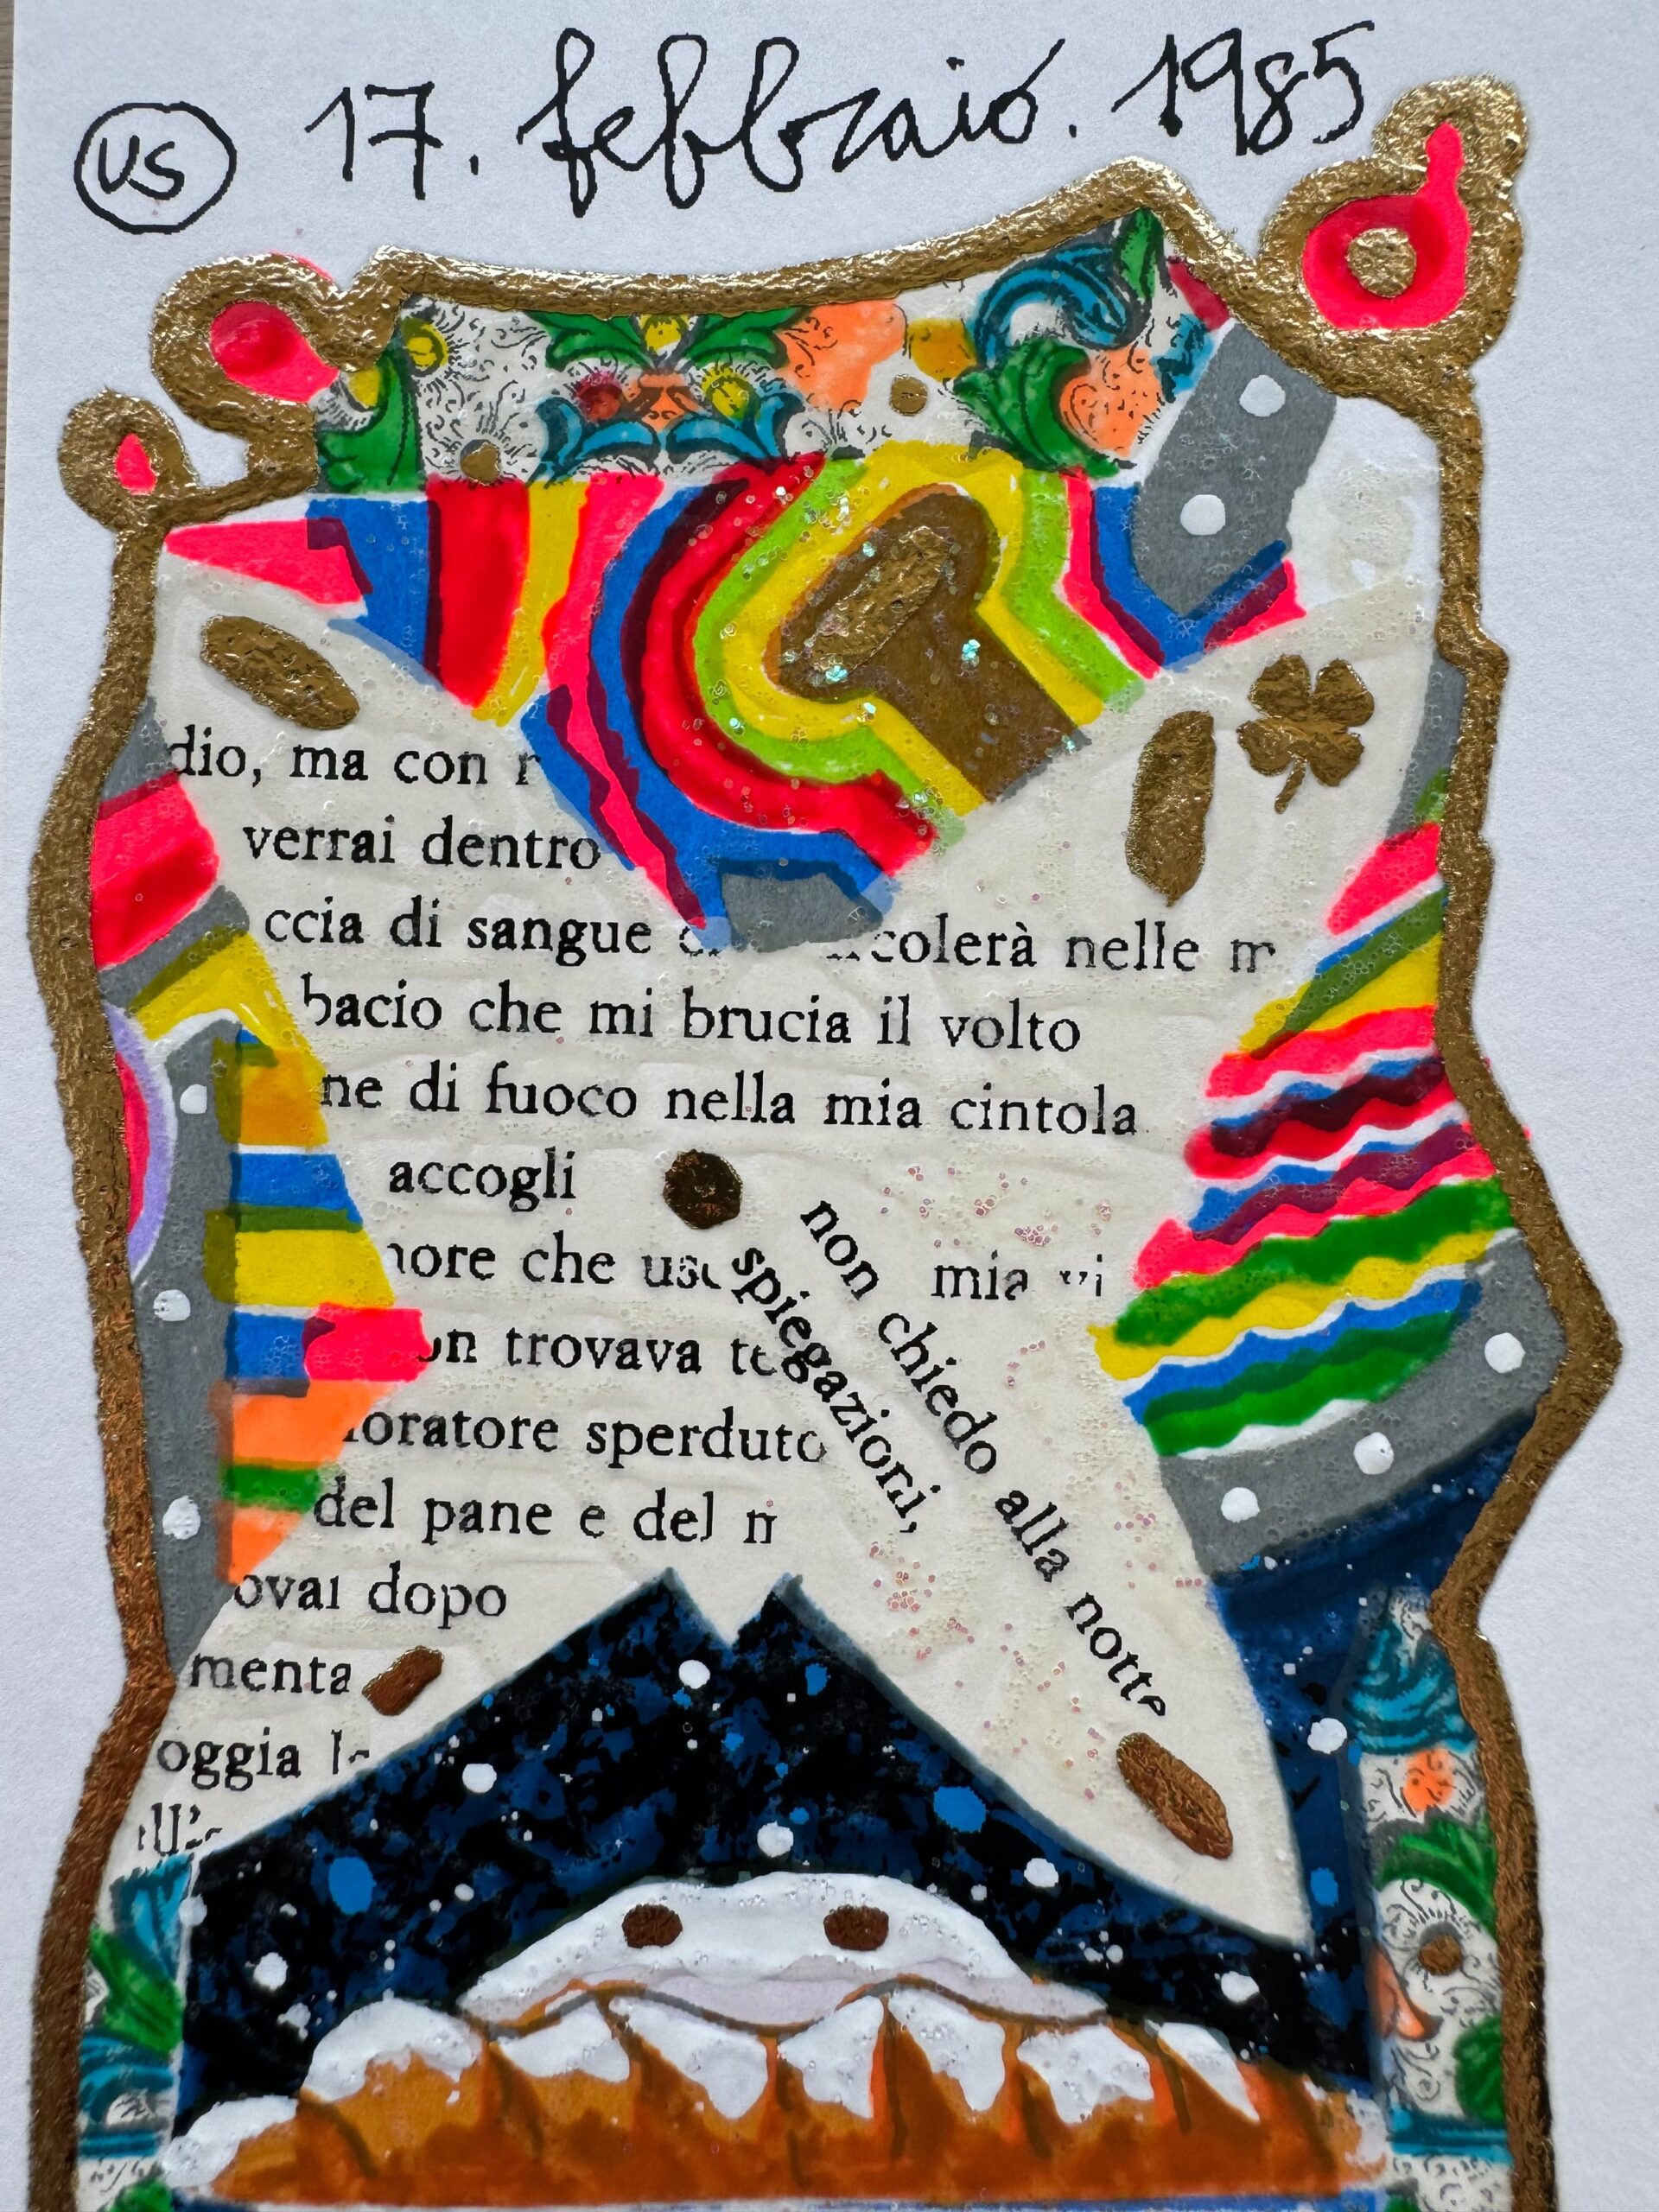 US 17. febbraio. 1985
dio, ma con
verrai dentro
ccia di sangue colerà nelle
bacio che mi brucia il volto
ne di fuoco nella mia cintola
accogli
ore che mia
on trovava
oratore sperduto
del pane e del
ovai dopo
menta
oggia
non chiedo alla notte
spiegazioni,